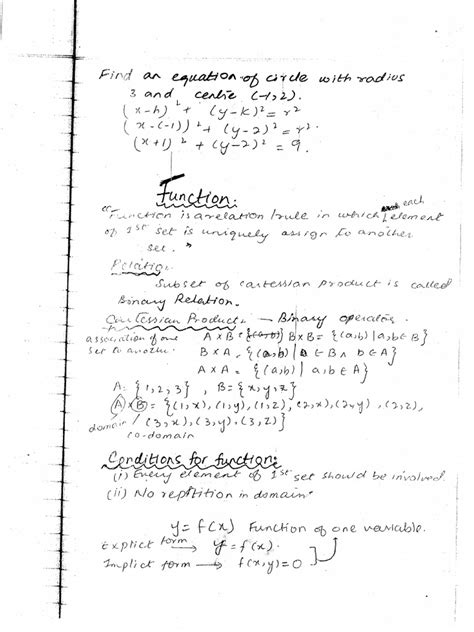 Find an equation of circle with radius
3 and centre (-1,2).
(x-h)² + (y-k)² = r²
(x-(-1))² + (y-2)² = r².
(x+1)² + (y-2)² = 9.
Function:
"Function is a relation/rule in which each element
of 1st set is uniquely assign to another
set."
Relation:
Subset of cartessian product is called
Binary Relation.
Cartessian Product. → Binary operator.
association of one
set to another.
A×B = {(a,b)} B×B = {(a,b) | a,b ∈ B}
B×A = {(a,b) | a ∈ B ∧ b ∈ A}
A×A = {(a,b) | a,b ∈ A}
A = {1,2,3}, B = {x,y,z}
A×B = {(1,x), (1,y), (1,z), (2,x), (2,y), (2,z),
domain (3,x), (3,y), (3,z)}
co-domain
Conditions for function:
(i) Every element of 1st set should be involved.
(ii) No reptition in domain.
y = f(x) Function of one variable.
Explict form → y = f(x).
Implict form → f(x,y) = 0